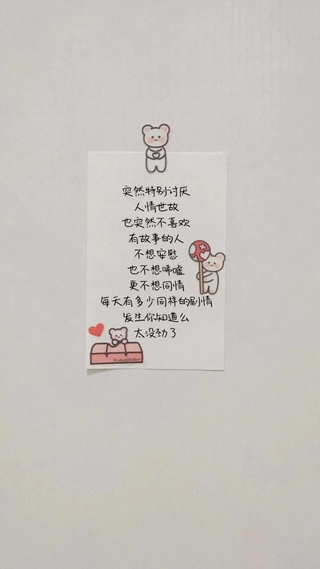 突然特别讨厌
人情世故
也突然不喜欢
有故事的人
不想安慰
也不想唏嘘
更不想同情
每天有多少同样的剧情
发生你知道么
太没劲了